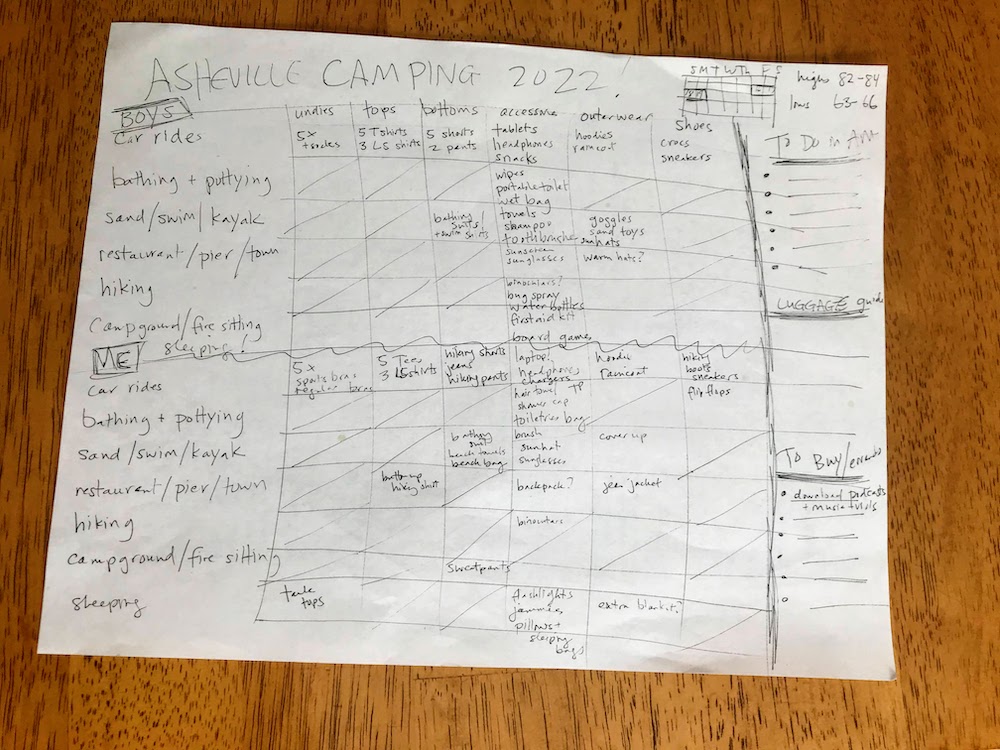 ASHEVILLE CAMPING 2022!
S M T W Th F S
highs 82-84
lows 63-66
BOYS
undies
tops
bottoms
accessories
outerwear
Shoes
Car rides
5x
+ socks
5 T shirts
3 LS shirts
5 shorts
2 pants
tablets
headphones
snacks
hoodies
raincoat
crocs
sneakers
bathing + pottying
wipes
portable toilet
wet bag
sand/swim/kayak
bathing
suits/
+ swim shirts
towels
shampoo
toothbrushes
goggles
sand toys
sunhats
restaurant/pier/town
sunscreen
sunglasses
warm hats?
hiking
binoculars?
bug spray
water bottles
first aid kit
Campground/fire sitting
sleeping!
board games
ME
car rides
5x
sports bras
regular bras
5 Tees
3 LS shirts
hiking shorts
jeans
hiking pants
laptop!
headphones
chargers
hoodie
raincoat
hiking
boots
sneakers
flip flops
bathing + pottying
hair towel TP
shower cap
toiletries bag
sand/swim/kayak
bathing
suit
beach towels
beach bag
brush
sunhat
sunglasses
cover up
restaurant/pier/town
button up
hiking shirt
backpack?
jean jacket
hiking
binoculars
campground/fire sitting
sweatpants
sleeping
tank
tops
flashlights
jammies
pillows +
sleeping
bags
extra blankets?
To Do in AM
LUGGAGE guide
To Buy/errands
download podcasts
+ music